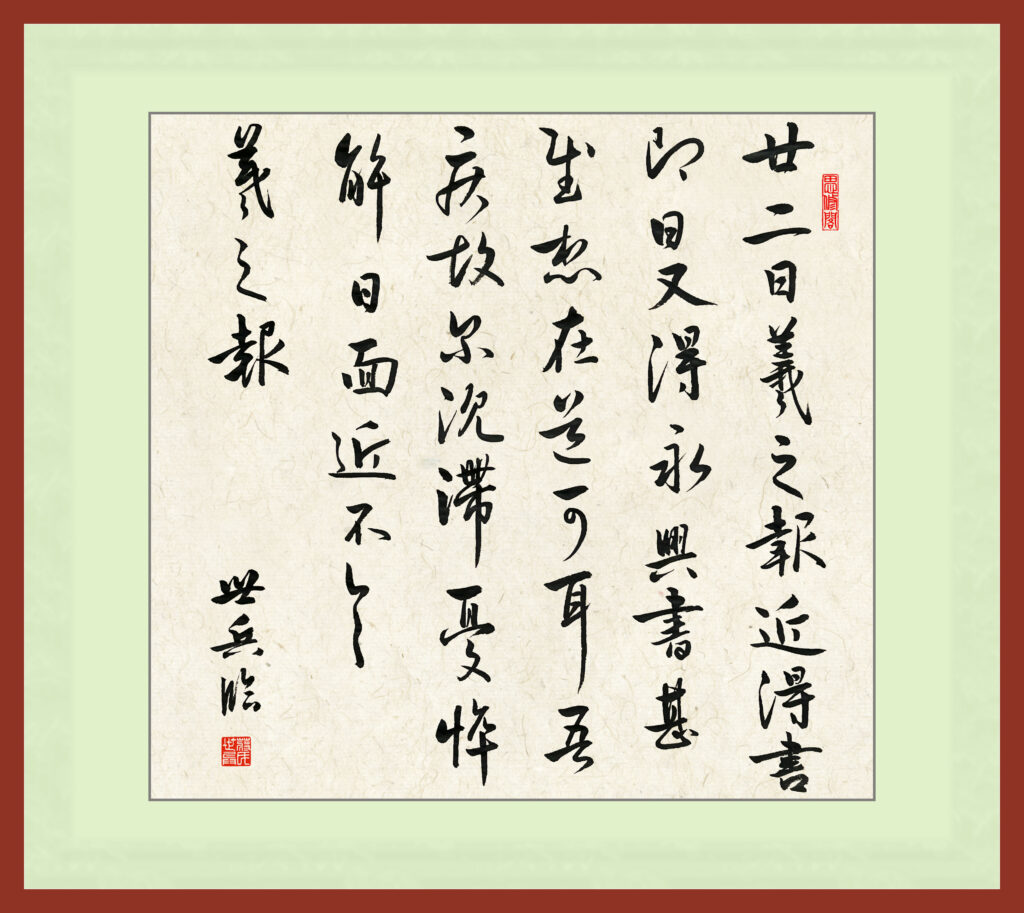 思修閣
廿二日羲之報近得書
即日又得永興書甚
慰想在道可耳吾
疾故尔沉滯憂悴
解日面近不具
羲之報
世兵臨